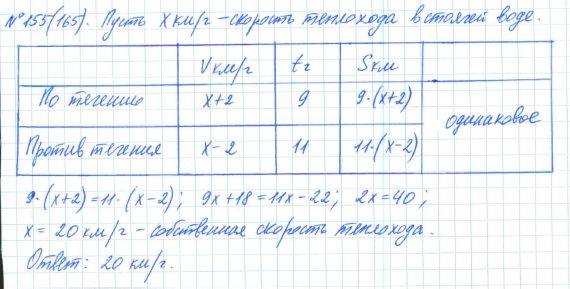 №155(165). Пусть х км/г – скорость теплохода в стоячей воде.
V км/г t г S км
По течению х+2 9 9·(х+2)
одинаковое
Против течения х-2 11 11·(х-2)
9·(х+2)=11·(х-2); 9х+18=11х-22; 2х=40;
х= 20 км/г – собственная скорость теплохода.
Ответ: 20 км/г.